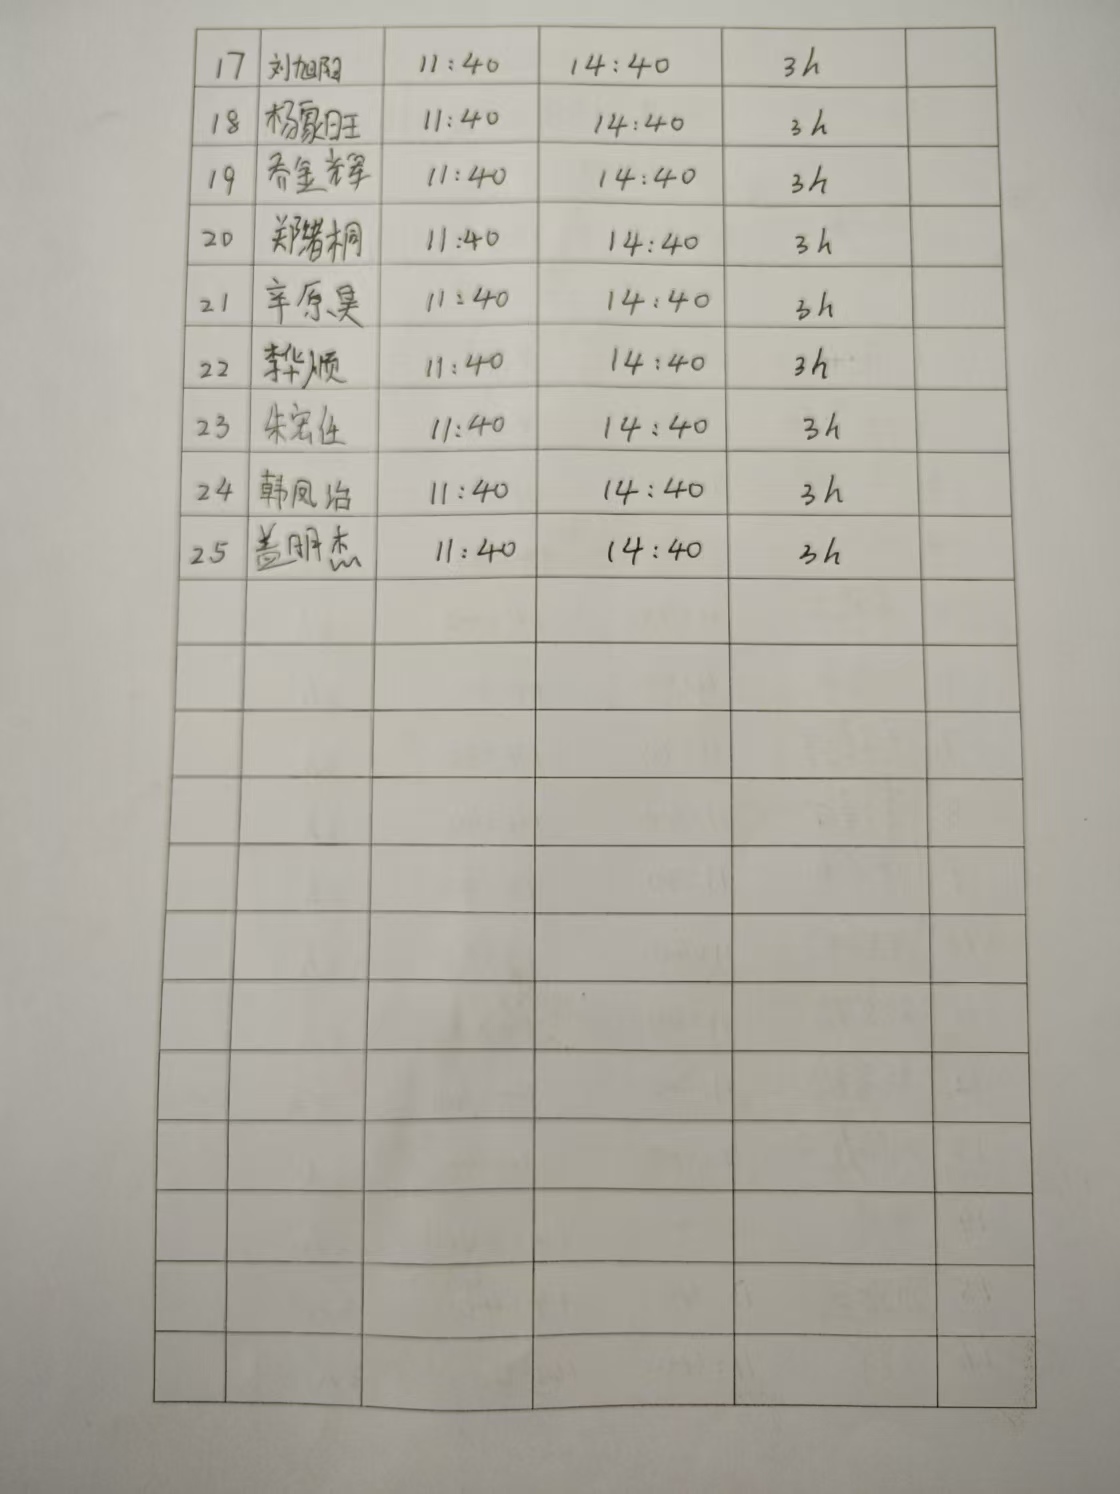 17 刘旭阳 11:40 14:40 3h
18 杨家旺 11:40 14:40 3h
19 乔金辉 11:40 14:40 3h
20 郑绪桐 11:40 14:40 3h
21 辛原昊 11:40 14:40 3h
22 李华顺 11:40 14:40 3h
23 朱宏任 11:40 14:40 3h
24 韩凤治 11:40 14:40 3h
25 盖明杰 11:40 14:40 3h